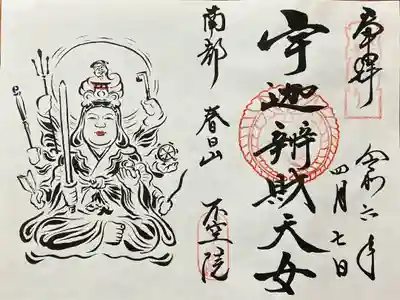 奉拝
令和六年
四月七日
宇迦辨財天女
南都 春日山 不空院